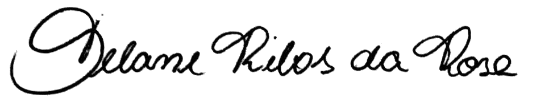 Delane Ribos da Rosa